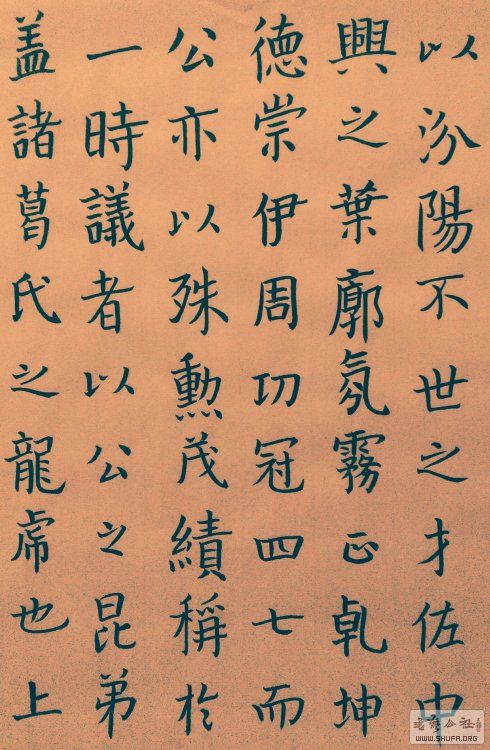 以汾陽不世之才佐中
興之葉廓氛霧正乹坤
德崇伊周功冠四七而
公亦以殊勲茂績稱於
一時議者以公之昆弟
盖諸葛氏之龍虎也上
WWW.SHUFA.ORG